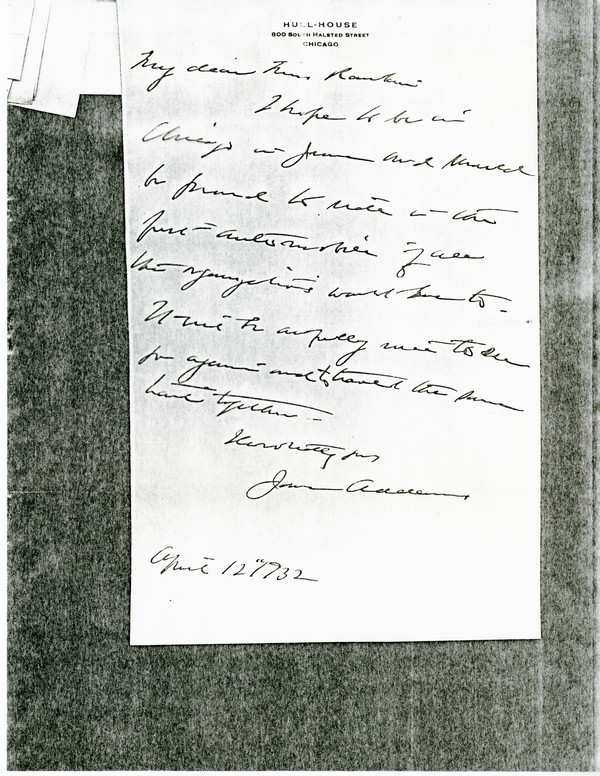 HULL-HOUSE
800 SOUTH HALSTED STREET
CHICAGO
My dear Miss Rankin
I hope to be in
Chicago in June and would
be proud to ride in the
first automobile if all
the organizations would like to.
It will be awfully nice to see
you again and to travel the same
together -
yours
Jane Addams
April 12" 1932